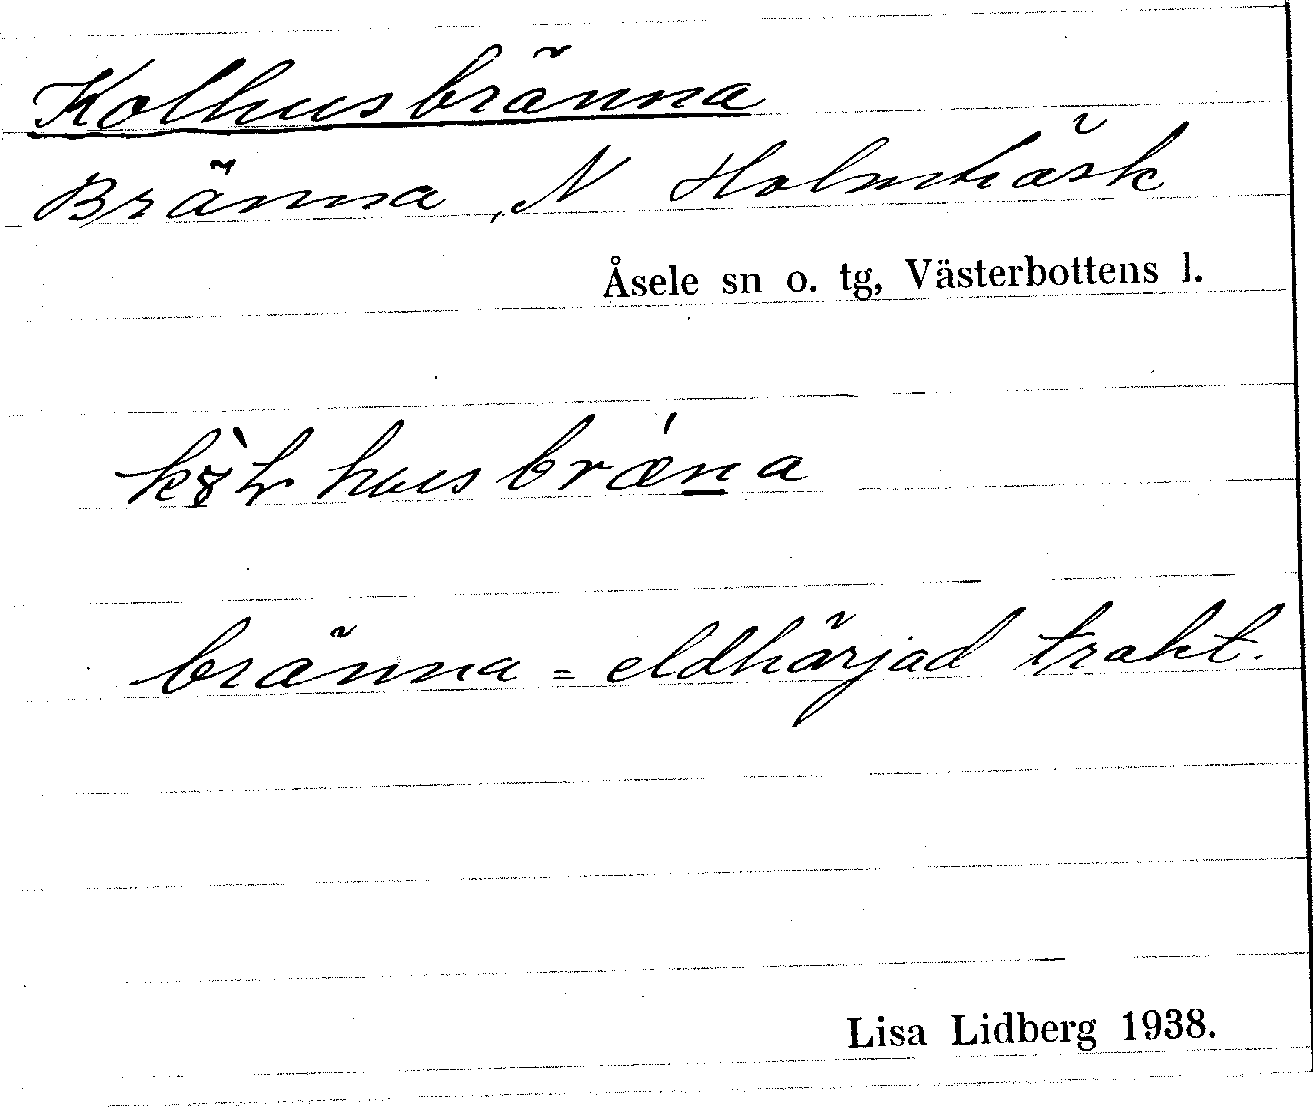 Kolhusbränna
Bränna, N Holmträsk
Åsele sn o. tg, Västerbottens l.
husbrǽna
bränna = eldhärjad trakt.
Lisa Lidberg 1938.